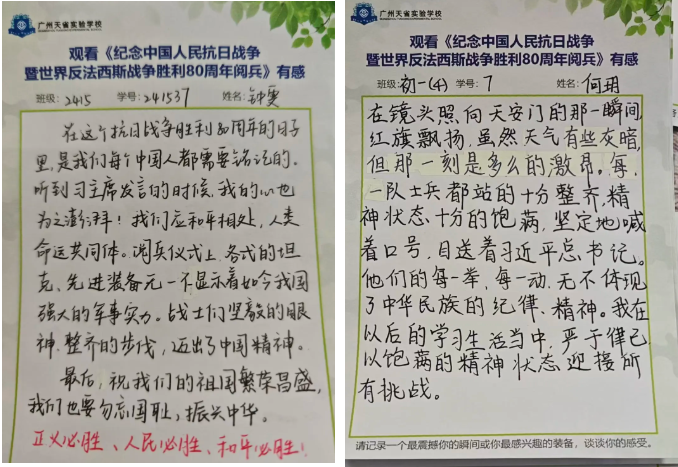 广州天省实验学校
观看《纪念中国人民抗日战争
暨世界反法西斯战争胜利80周年阅兵》有感
班级：2415 学号：241537 姓名：钟雯
在这个抗日战争胜利80周年的日子
里，是我们每个中国人都需要铭记的。
听到习主席发言的时候，我的心也
为之澎湃！我们应和平相处，人类
命运共同体。阅兵仪式上，各式的坦
克、先进装备无一不显示着如今我国
强大的军事实力。战士们坚毅的眼
神，整齐的步伐，迈出了中国精神。
最后，祝我们的祖国繁荣昌盛，
我们也要勿忘国耻，振兴中华。
正义必胜、人民必胜、和平必胜！
广州天省实验学校
观看《纪念中国人民抗日战争
暨世界反法西斯战争胜利80周年阅兵》有感
班级：初一(4) 学号：7 姓名：何玥
在镜头照向天安门的那一瞬间，
红旗飘扬，虽然天气有些灰暗，
但那一刻是多么的激昂。每
一队士兵都站的十分整齐，精
神状态十分的饱满，坚定地喊
着口号，目送着习近平总书记。
他们的每一举，每一动，无不体现
了中华民族的纪律、精神。我在
以后的学习生活当中，严于律己，
以饱满的精神状态迎接所
有挑战。
请记录一个最震撼你的瞬间或你最感兴趣的装备，谈谈你的感受。